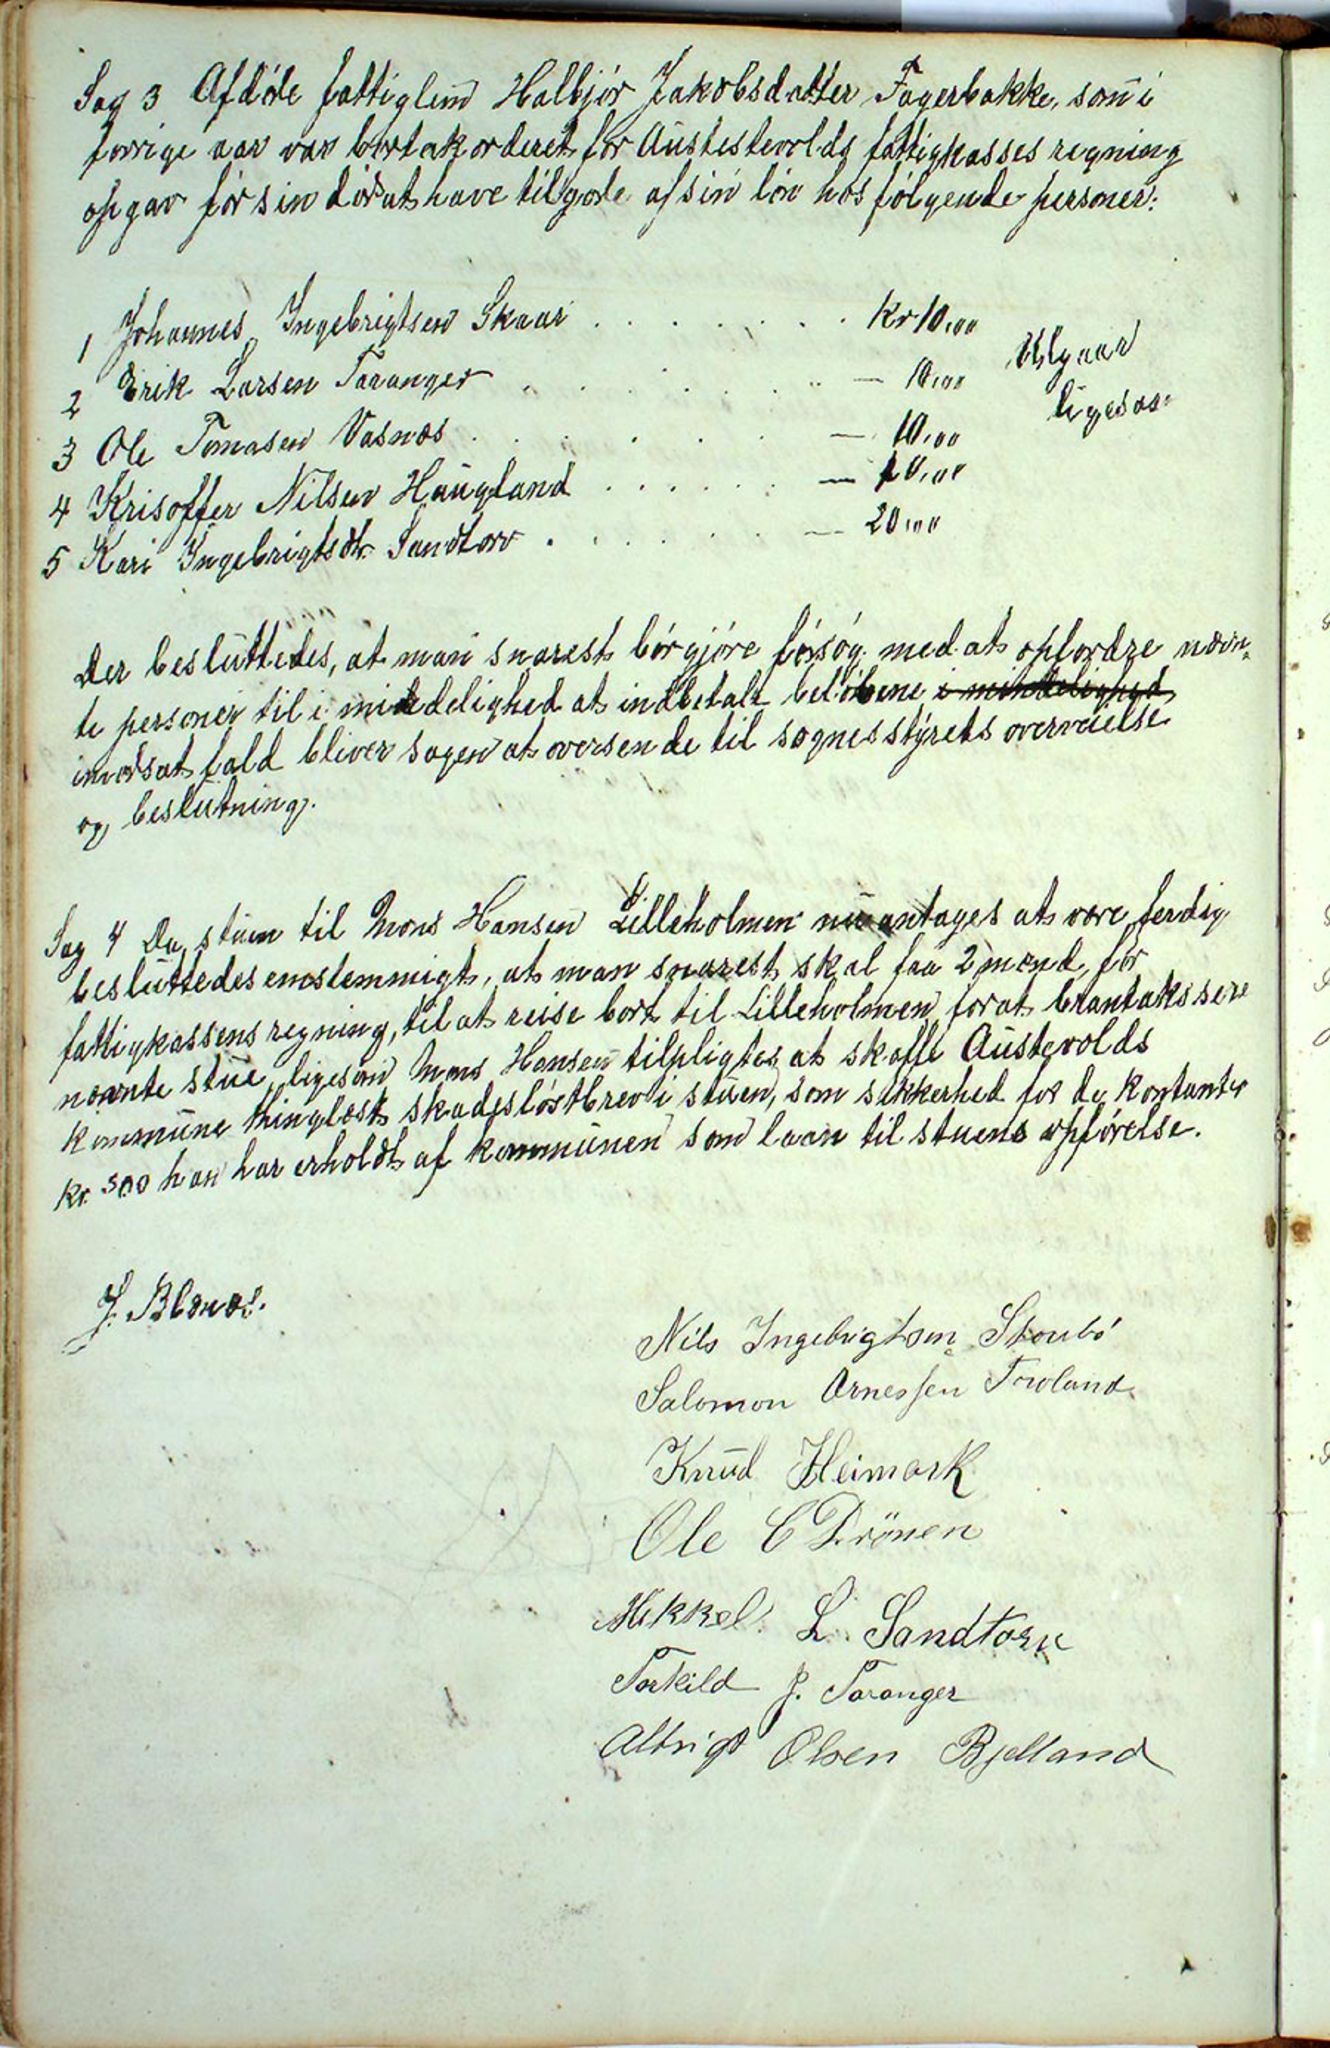 Sag 3 Afdöde fattiglem Halbjör Jakobsdatter Fagerbakke, som i
forrige aar var bortakorderet for Austestevolds fattigkasses regning
opgav för sin död at have tilgode af sin lön hos følgende personer:
1 Johannes Ingebrigtsen Skaar . . . . . . . Kr 10,00
2 Erik Larsen Taranger . . . . . . — 10,00 Utgaar
3 Ole Tomasen Vasnæs . . . . . . — 10,00 ligesaa
4 Krisoffer Nilsen Haugland . . . . . . — 10,00
5 Kari Ingebrigtsdtr. Sandtorv . . . . . — 20,00
Der besluttedes, at man snarest bör gjöre försög med at opfordre nævn-
te personer til i mindelighed at indbetale belöbene i mindelighed
imodsat fald bliver sagen at oversende til sognesstyrets overveielse
og beslutning.
Sag 4 Da stuen til Mons Hansen Lilleholmen nu antages at være ferdig
besluttedes enstemmigt, at man snarest skal faa 2 mænd, for
fattigkassens regning, til at reise bort til Lilleholmen for at brantakssere
nævnte stue, ligesom Mons Hansen tilpligtes at skaffe Austevolds
kommune thinglæst skadeslöstbrev i stuen, som sikkerhed for de kontanter
kr. 300 han har erholdt af kommunen som laan til stuens opförelse.
J. Blænes.
Nils Ingebrigtsen Skoubö
Salomon Arnessen Troland
Knud Heimark
Ole C Drönen
Mikkel L. Sandtorv
Torkild J. Taranger
Albrigt Olsen Bjelland